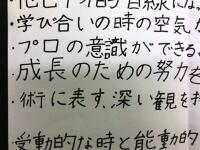 ・学び合いの時の空気が
・プロの意識ができる
・成長のための努力を
・術に表す、深い観を持
受動的な時と能動的